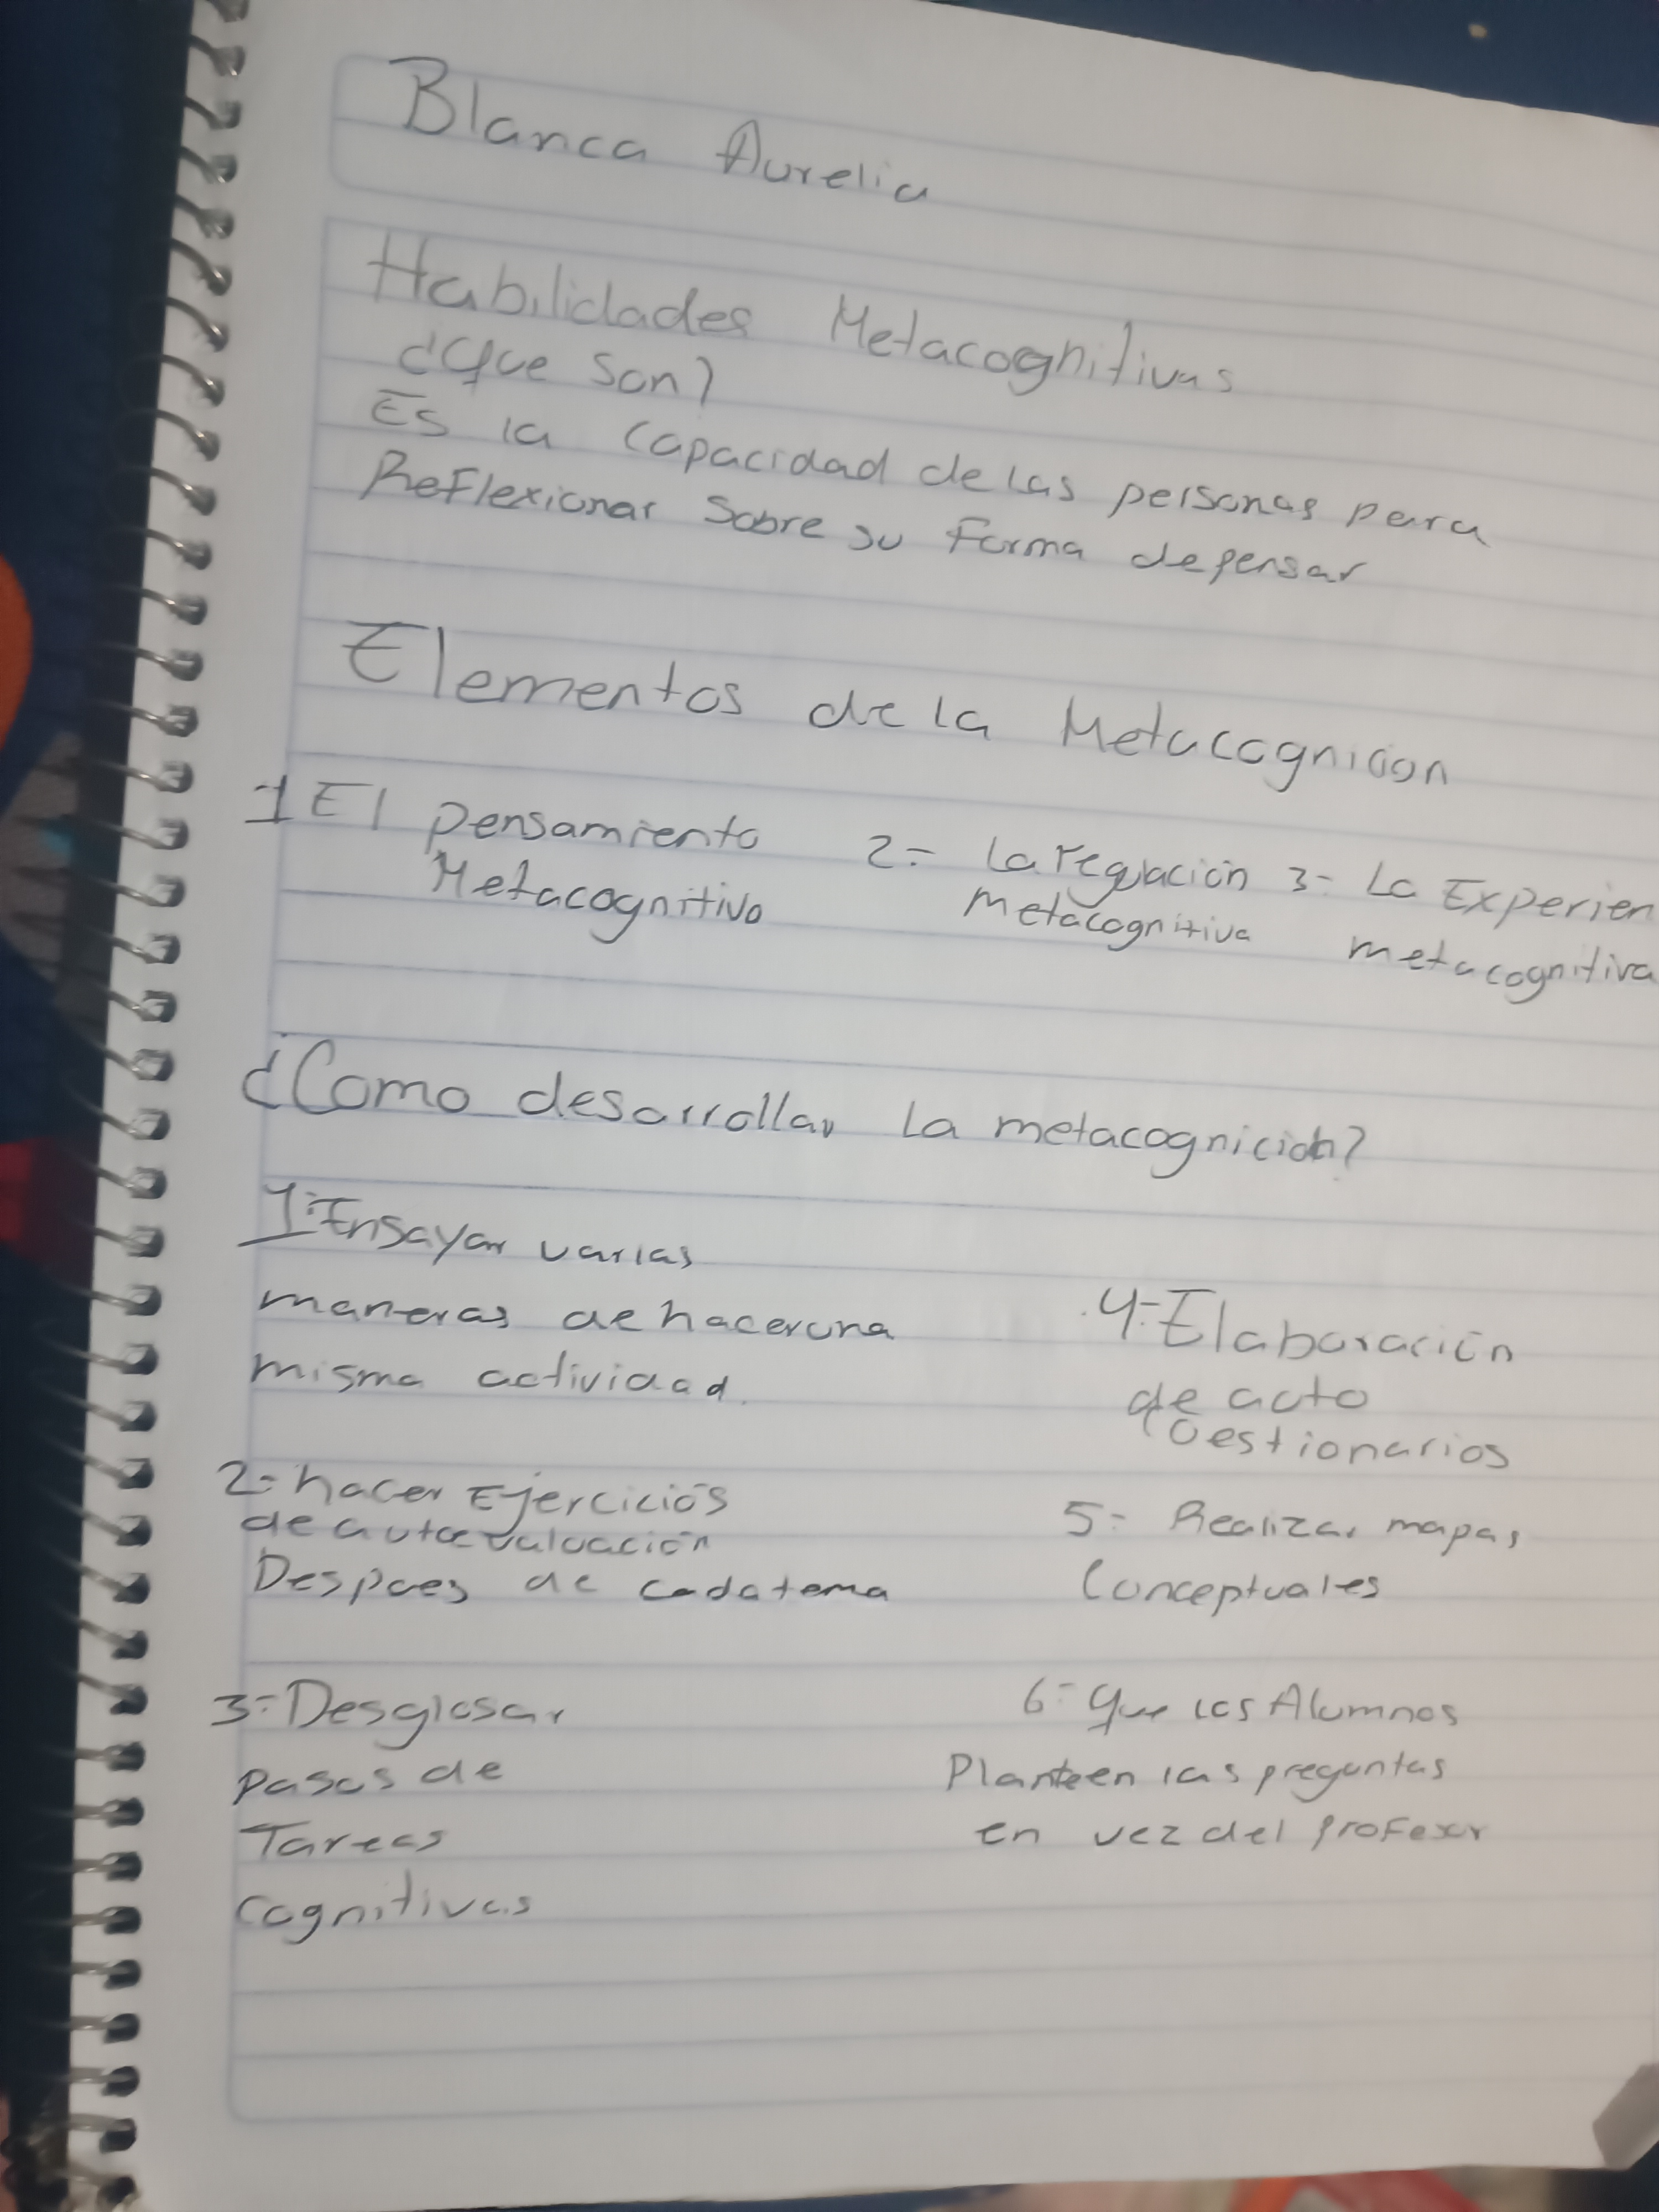 Blanca Aurelia
Habilidades Metacognitivas
¿Que son?
Es la capacidad de las personas para
Reflexionar Sobre su Forma de pensar
Elementos de la Metacognicion
1 El pensamiento
Metacognitivo
2- La regulación
metacognitiva
3- La Experien
metacognitiva
¿Como desarrollar la metacognición?
1- Ensayar varias
maneras de hacer una
misma actividad.
2- hacer Ejercicios
de autoevaluación
Despues de cada tema
3- Desglosar
pasos de
Tareas
cognitivas
4- Elaboración
de auto
Cuestionarios
5- Realizar mapas
Conceptuales
6- Que los Alumnos
Planteen las preguntas
en vez del profesor